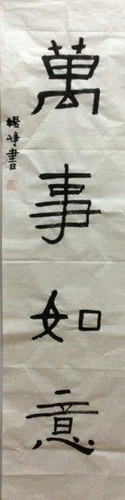 萬事如意
緒峰書